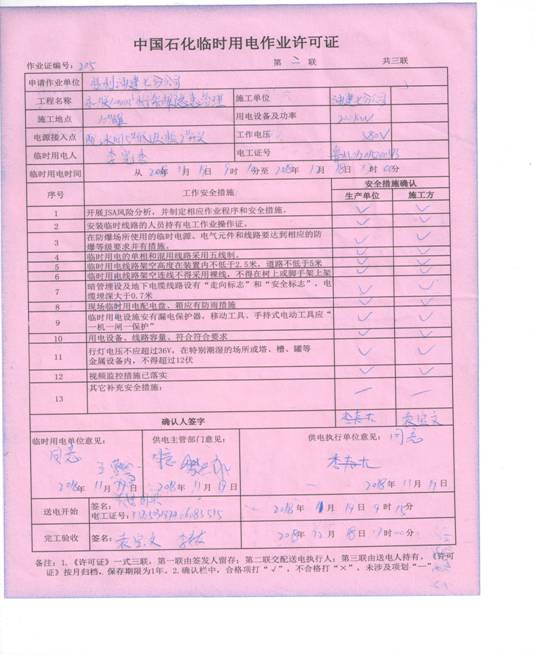 中国石化临时用电作业许可证
作业证编号：205 第 二 联 共三联
申请作业单位
工程名称 施工单位
施工地点 用电设备及功率
电源接入点 工作电压 380V
临时用电人 电工证号
临时用电时间 从 2018年11月19日9时 分至2018年12月18日 时00分
序号 工作安全措施 安全措施确认
生产单位 施工方
1 开展JSA风险分析，并制定相应作业程序和安全措施。
2 安装临时线路的人员持有电工作业操作证。
3 在防爆场所使用的临时电源、电气元件和线路要达到相应的防
爆等级要求并有措施。
4 临时用电的单相和混用线路采用五线制。
5 临时用电线路架空高度在装置内不低于2.5米，道路不低于5米
6 临时用电线路架空连线不得采用裸线，不得在树上或脚手架上架
7 暗管埋设及地下电缆线路设有“走向标志”和“安全标志”，电
缆埋深大于0.7米
8 现场临时用电配电盘、箱应有防雨措施
9 临时用电设施安有漏电保护器，移动工具、手持式电动工具应“
一机一闸一保护”
10 用电设备、线路容量、符合符合要求
11 行灯电压不应超过36V，在特别潮湿的场所或塔、槽、罐等
金属设备内，不得超过12伏
12 视频监控措施已落实
13 其它补充安全措施：
确认人签字
临时用电单位意见： 供电主管部门意见： 供电执行单位意见：同意
同意
2018年11月19日 2018年11月19日 2018年11月19日
送电开始 签名：
电工证号： 2018年11月19日9时15分
完工验收 签名： 2018年12月18日 时00分
备注：1.《许可证》一式三联，第一联由签发人留存；第二联交配送电执行人；第三联由送电人持有，《许可
证》按月归档，保存期限为1年。2.确认栏中，合格项打“√”，不合格打“×”，未涉及项划“—”